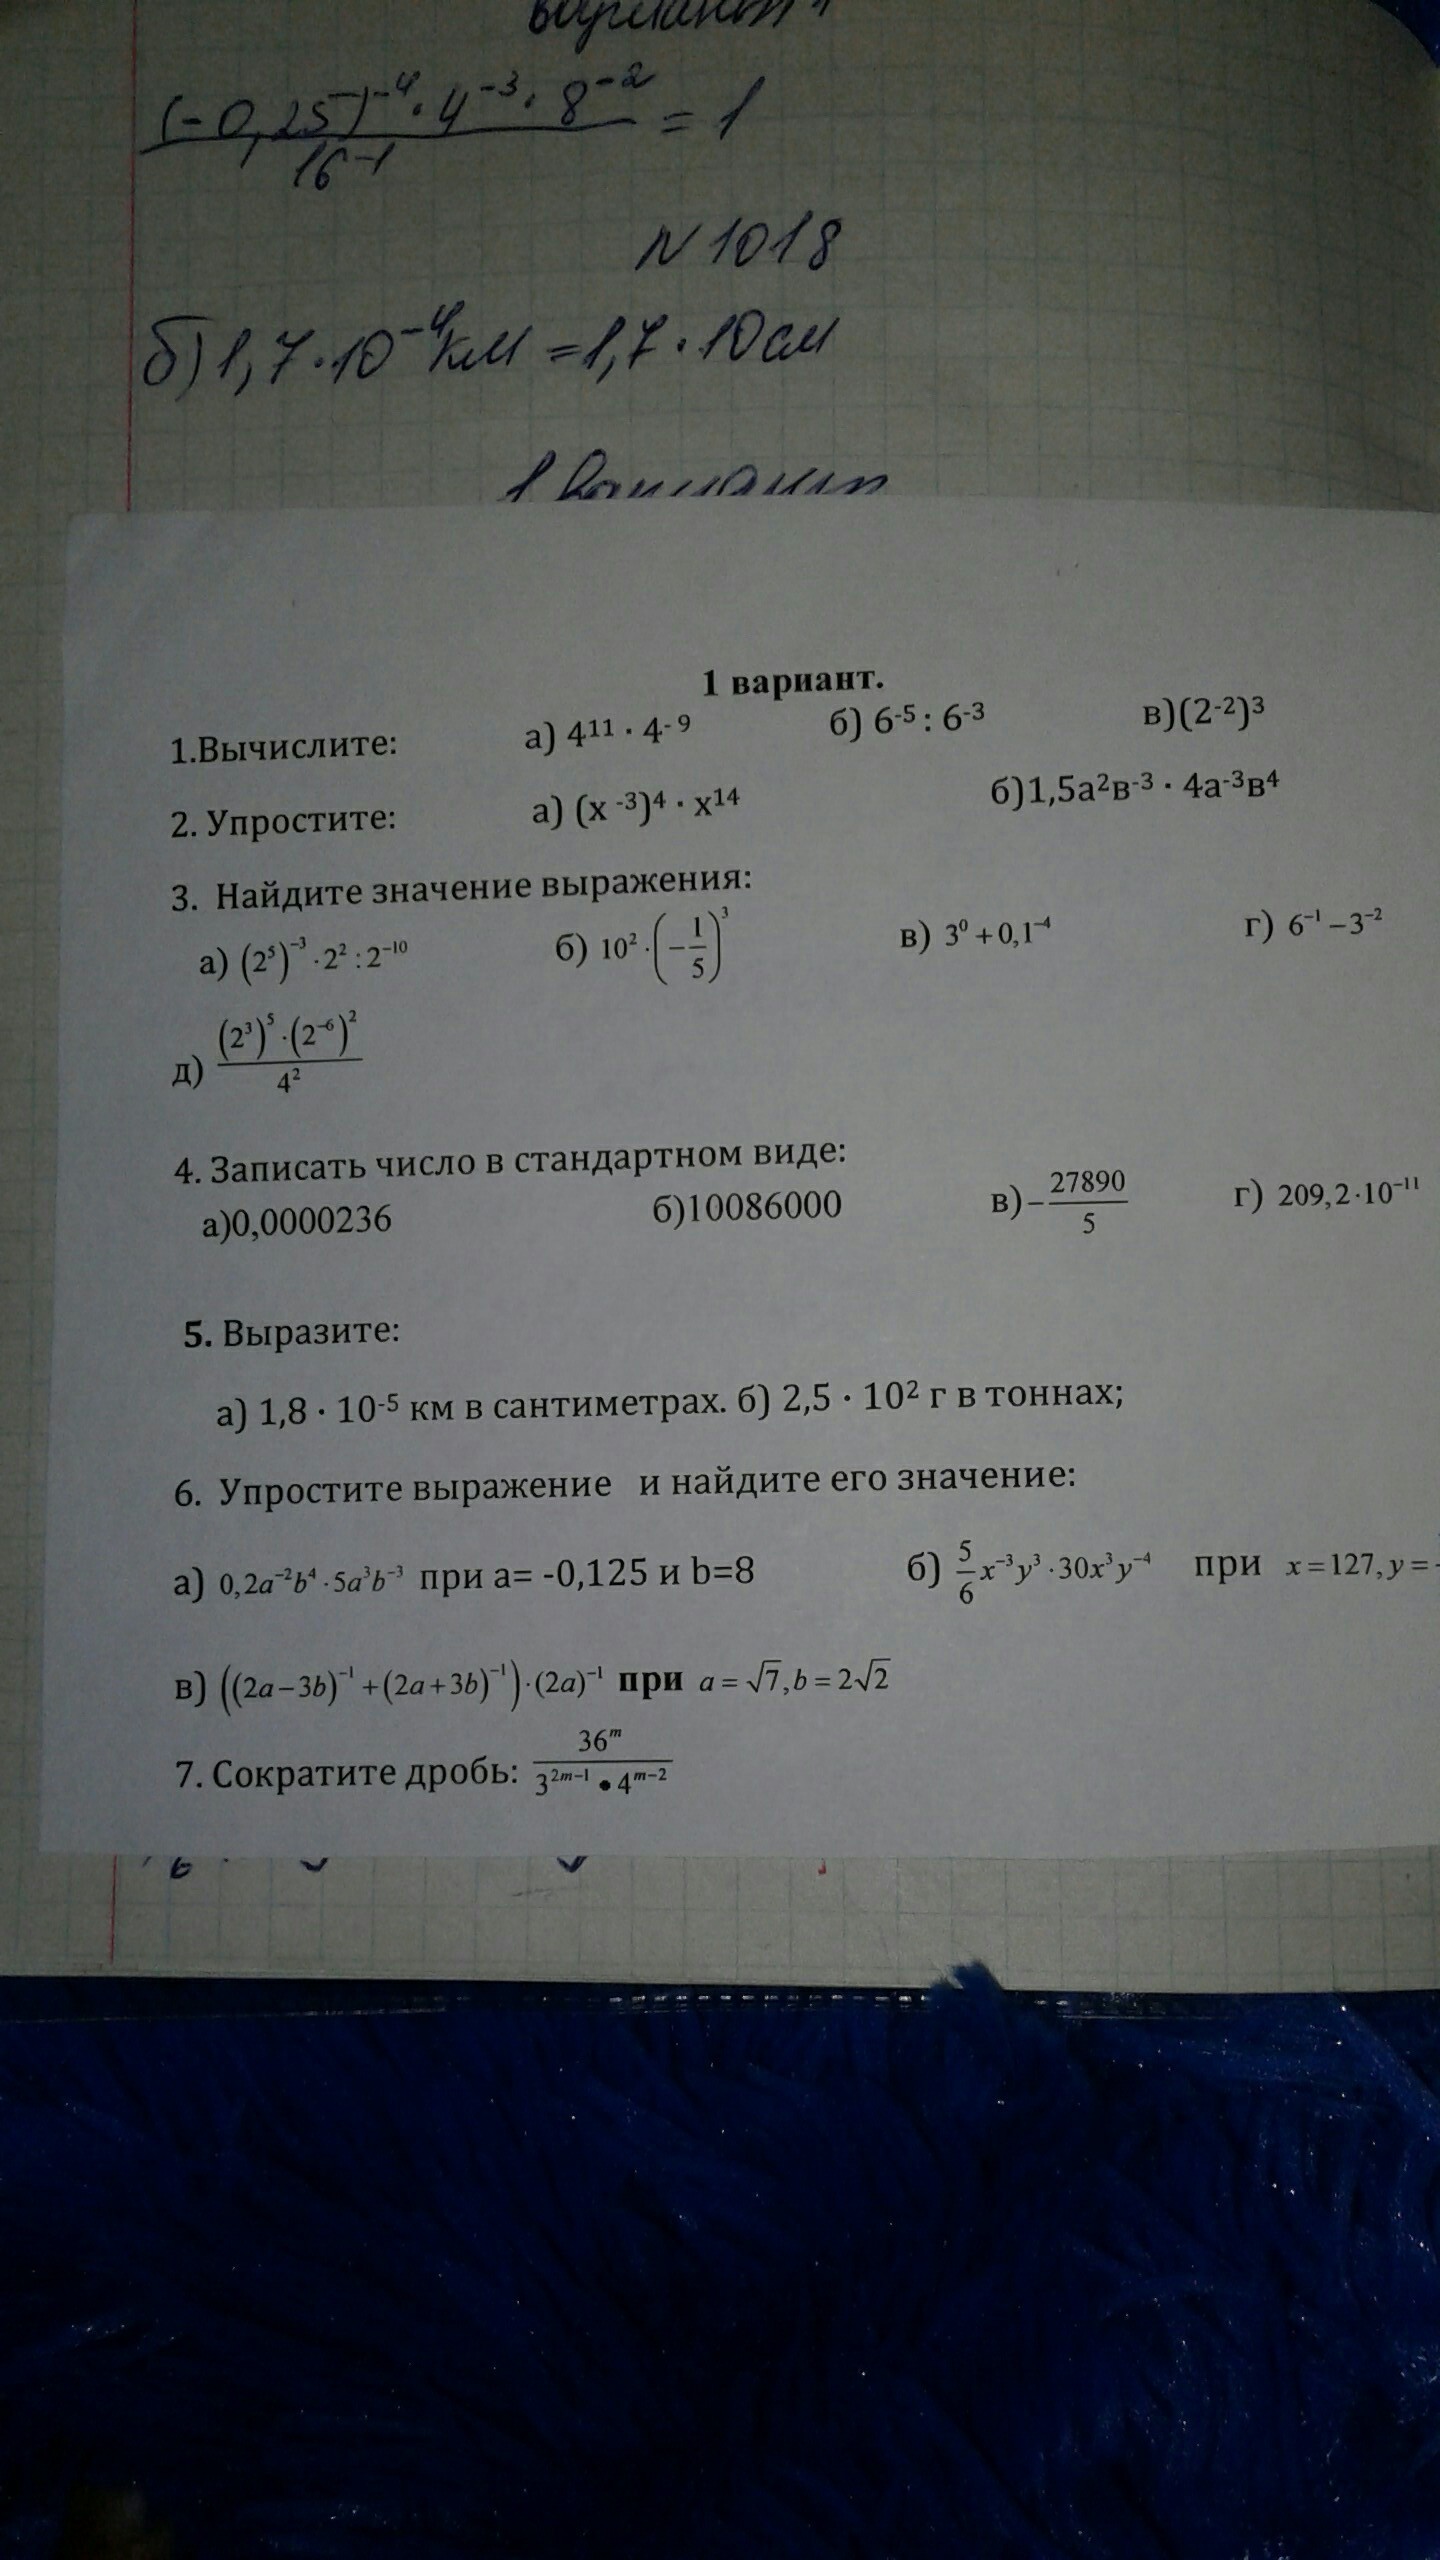 вариант 1
(-0,25)⁻⁴ · 4⁻³ · 8⁻² / 16⁻¹ = 1
N 1018
б) 1,7 · 10⁻⁴ км = 1,7 · 10 см
1 вариант
1 вариант.
1.Вычислите: а) 4¹¹ · 4⁻⁹ б) 6⁻⁵ : 6⁻³ в)(2⁻²)³
2. Упростите: а) (х ⁻³)⁴ · х¹⁴ б)1,5а²в⁻³ · 4а⁻³в⁴
3. Найдите значение выражения:
а) (2⁵)⁻³ · 2² : 2⁻¹⁰ б) 10² · (−1/5)³ в) 3⁰ + 0,1⁻⁴ г) 6⁻¹ − 3⁻²
д) (2³)⁵ · (2⁻⁶)² / 4²
4. Записать число в стандартном виде:
а)0,0000236 б)10086000 в) − 27890/5 г) 209,2 · 10⁻¹¹
5. Выразите:
а) 1,8 · 10⁻⁵ км в сантиметрах. б) 2,5 · 10² г в тоннах;
6. Упростите выражение и найдите его значение:
а) 0,2a⁻²b⁴ · 5a³b⁻³ при а= -0,125 и b=8 б) 5/6 x⁻³y³ · 30x³y⁻⁴ при x = 127, y =
в) ((2a − 3b)⁻¹ + (2a + 3b)⁻¹) · (2a)⁻¹ при a = √7, b = 2√2
7. Сократите дробь: 36ᵐ / 3²ᵐ⁻¹ • 4ᵐ⁻²